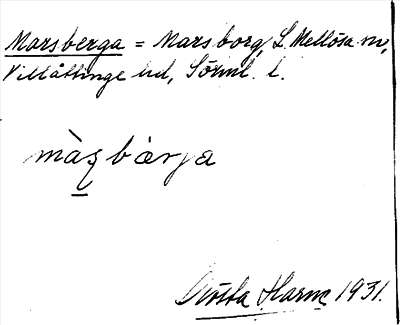 Marsberga = Marsborg, L. Mellösa sn,
Villåttinge hd, Sörml. l.
màʂbærja
Gösta Harme 1931.